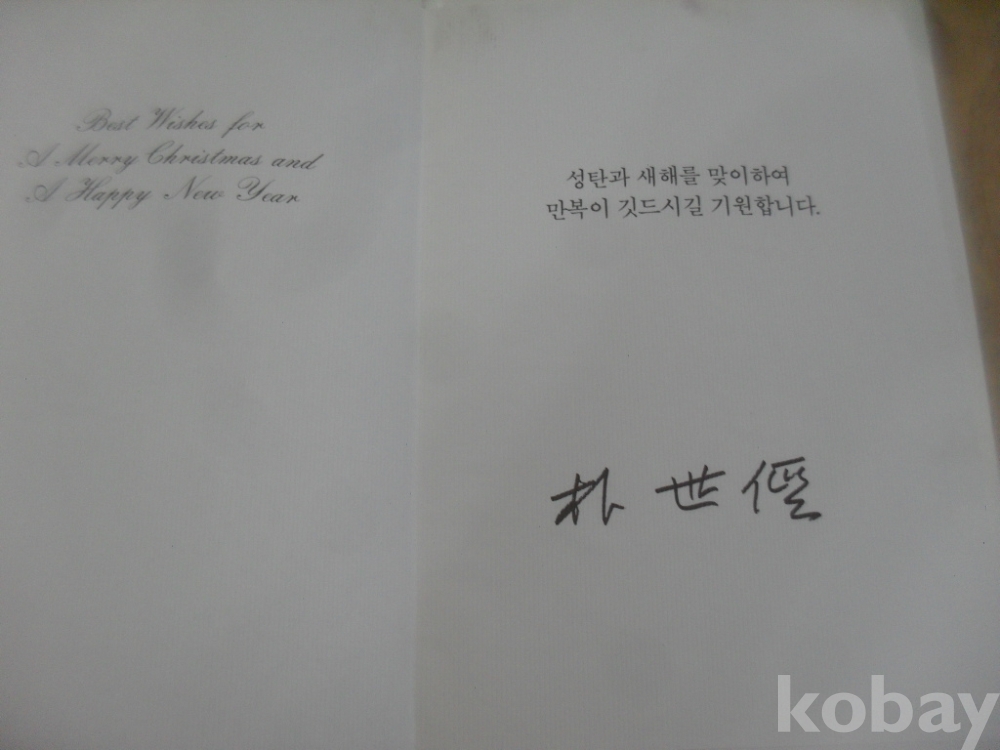 Best Wishes for
A Merry Christmas and
A Happy New Year
성탄과 새해를 맞이하여
만복이 깃드시길 기원합니다.
朴 世
kobay